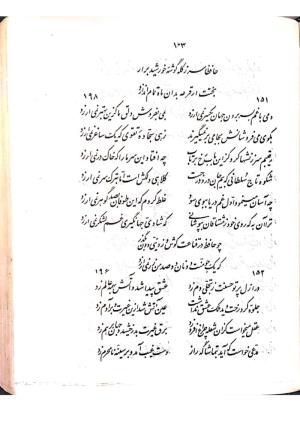 ۱۲۳
حافظا سر ز کله گوشهٔ خورشید برآر
بختت ار قرعه بدان ماه تمام اندازد
۱۵۱
۱۹۸
دمی با غم بسر بردن جهان یکسر نمی‌ارزد بمی بفروش دلق ما کزین بهتر نمی‌ارزد
بکوی می فروشانش بجامی بر نمیگیرند زهی سجادهٔ تقوی که یک ساغر نمی‌ارزد
رقیبم سرزنشها کرد کز این باب رخ برتاب چه افتاد این سر ما را که خاک در نمی‌ارزد
شکوه تاج سلطانی که بیم جان درو درجست کلاهی دلکش است اما بترک سر نمی‌ارزد
چه آسان مینمود اول غم دریا ببوی سود غلط کردم که این طوفان بصد گوهر نمی‌ارزد
ترا آن به که روی خود ز مشتاقان بپوشانی که شادی جهانگیری غم لشکر نمی‌ارزد
چو حافظ در قناعت کوش و ز دنیی دون بگذر
که یک جو منت دونان دو صد من زر نمی‌ارزد
۱۵۲
۱۹۶
در ازل پرتو حسنت ز تجلی دم زد عشق پیدا شد و آتش بهمه عالم زد
جلوهٔ کرد رخت دید ملک عشق نداشت عین آتش شد ازین غیرت و بر آدم زد
عقل میخواست کزان شعله چراغ افروزد برق غیرت بدرخشید و جهان برهم زد
مدعی خواست که آید بتماشاگه راز دست غیب آمد و بر سینهٔ نامحرم زد